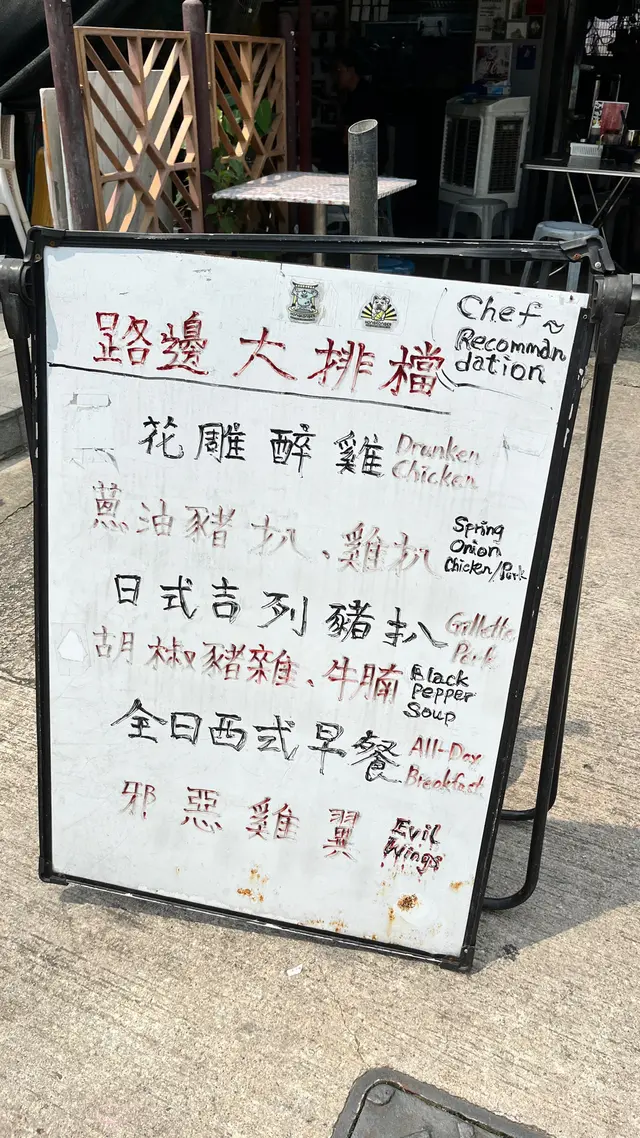 路邊大排檔
Chef~
Recomman
dation
花雕醉雞 Drunken
Chicken
蔥油豬扒、雞扒 Spring
Onion
Chicken/Pork
日式吉列豬扒 Gillette
Pork
胡椒豬雜、牛腩 Black
Pepper
Soup
全日西式早餐 All-Day
Breakfast
邪惡雞翼 Evil
Wings